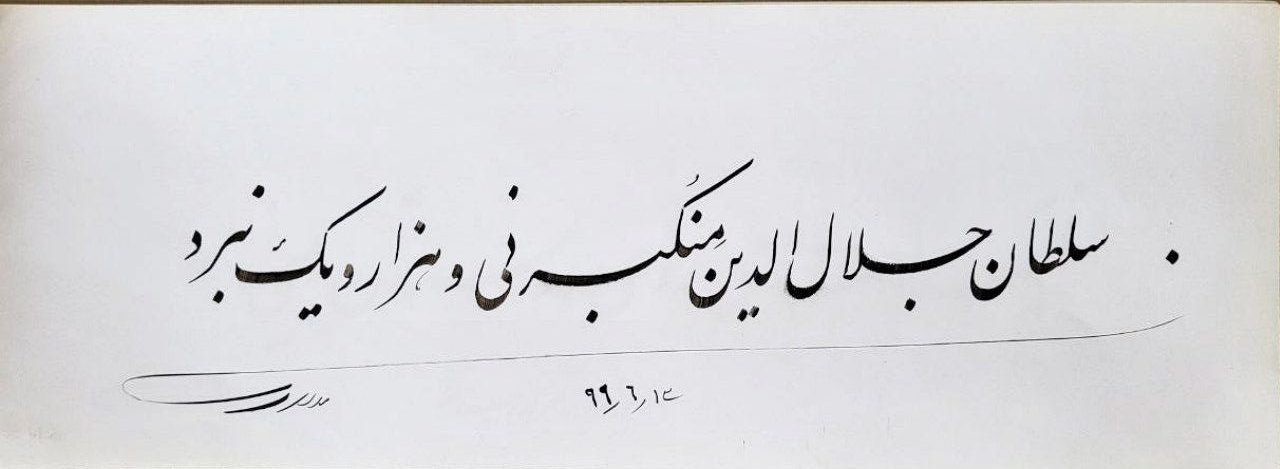 سلطان جلال الدین مِنکُبرنی و هزار و یک نبرد
۹۹٫۶٫۱۳